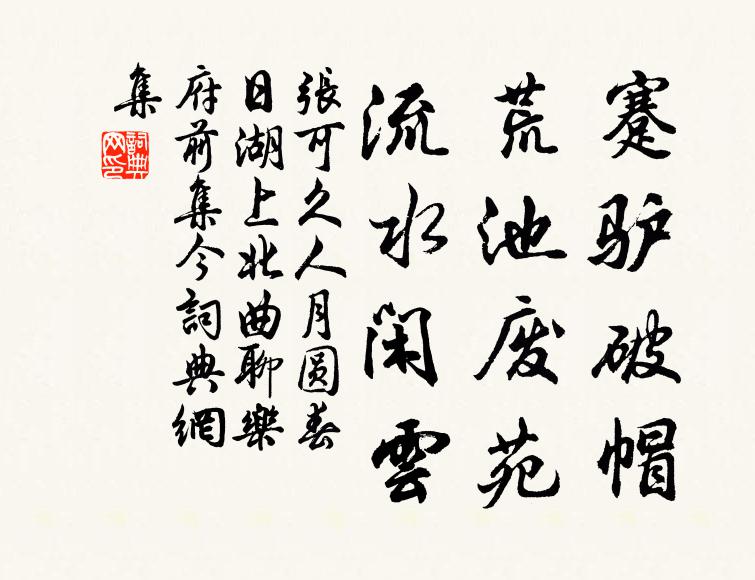 蹇驴破帽
荒池废苑
流水閑雲
張可久人月圆春
日湖上北曲聊樂
府前集今詞典網
集
詞典網印